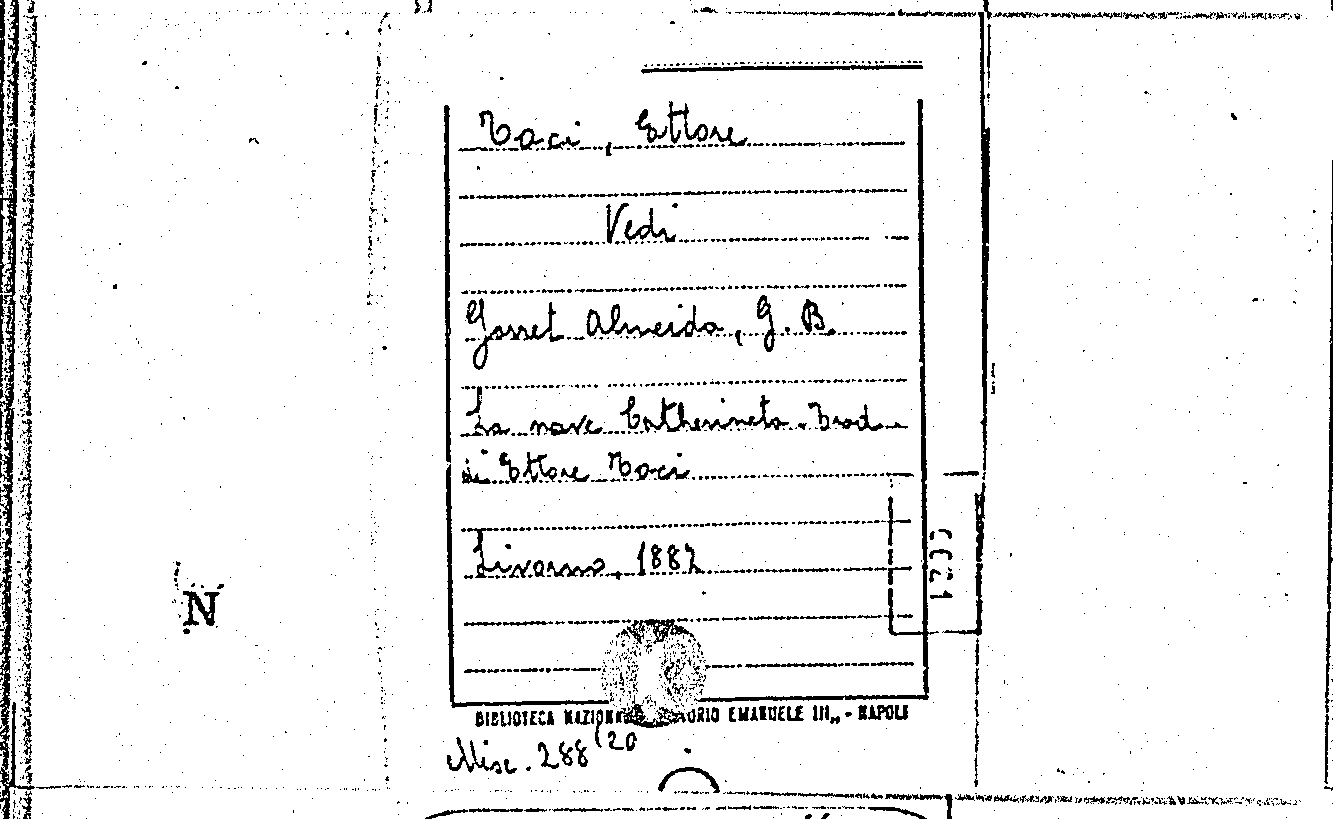 Toci, Ettore
Vedi
Garret Almeida, G. B.
La nave Catherineta. Trad.
di Ettore Toci
Livorno, 1882
N
BIBLIOTECA NAZIONA ORIO EMANUELE III„ - NAPOLI
Misc. 288(20